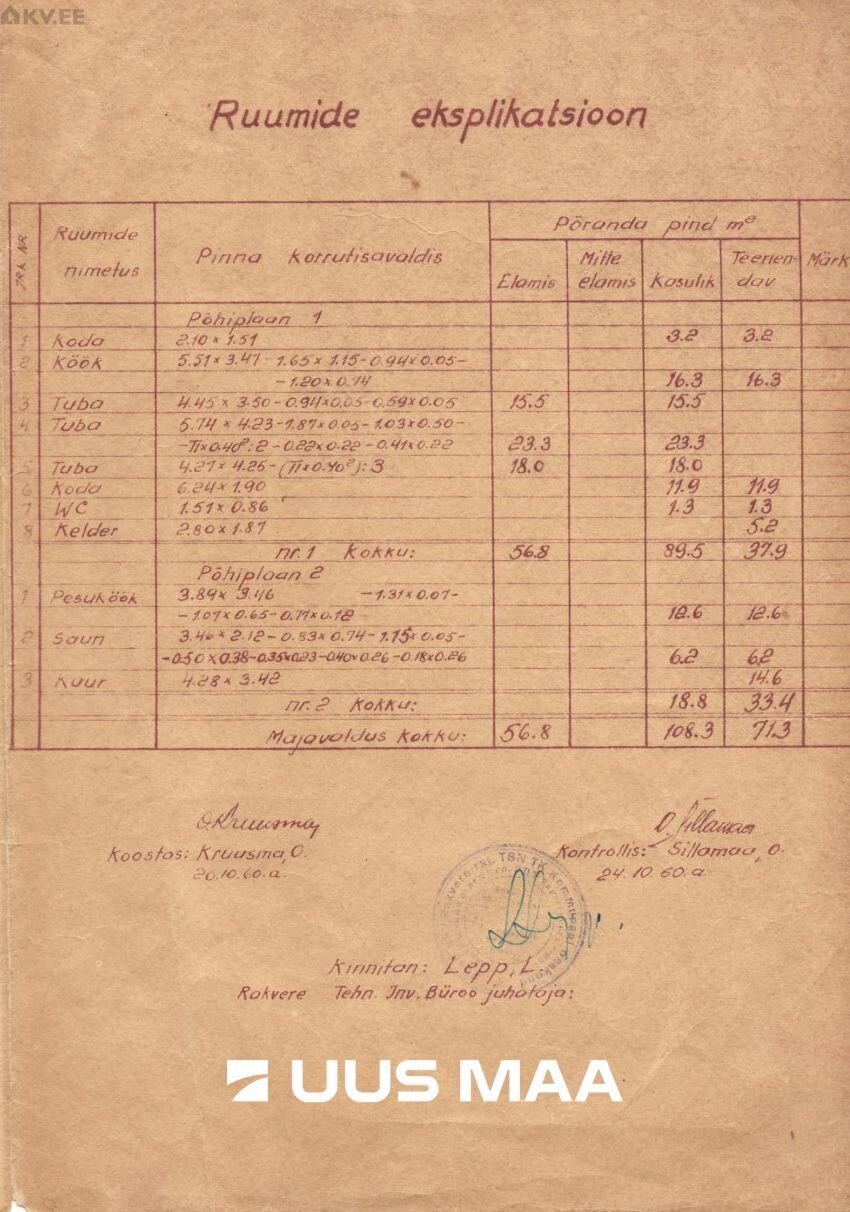 KV.EE
Ruumide eksplikatsioon
Jrk. NR. Ruumide nimetus Pinna korrutisavaldis Põranda pind m² Märk
Elamis Mitte elamis Kasulik Teenendav
Põhiplaan 1
1 Koda 2.10 x 1.51 3.2 3.2
2 Köök 5.51 x 3.47 - 1.65 x 1.15 - 0.94 x 0.05 -
- 1.20 x 0.74 16.3 16.3
3 Tuba 4.45 x 3.50 - 0.94 x 0.05 - 0.59 x 0.05 15.5 15.5
4 Tuba 5.74 x 4.23 - 1.87 x 0.05 - 1.03 x 0.50 -
- π x 0.40² : 2 - 0.22 x 0.22 - 0.41 x 0.22 23.3 23.3
5 Tuba 4.27 x 4.25 - (π x 0.40²) : 3 18.0 18.0
6 Koda 6.24 x 1.90 11.9 11.9
7 WC 1.51 x 0.86 1.3 1.3
8 Kelder 2.80 x 1.87 5.2
nr. 1 kokku: 56.8 89.5 37.9
Põhiplaan 2
1 Pesuköök 3.89 x 3.46 - 1.31 x 0.07 -
- 1.07 x 0.65 - 0.77 x 0.12 12.6 12.6
2 Saun 3.46 x 2.12 - 0.83 x 0.74 - 1.15 x 0.05 -
- 0.50 x 0.38 - 0.35 x 0.23 - 0.40 x 0.26 - 0.18 x 0.26 6.2 6.2
3 Kuur 4.28 x 3.42 14.6
nr. 2 kokku: 18.8 33.4
Majavaldus kokku: 56.8 108.3 71.3
O. Kruusma
D. Sillamaa
Koostas: Kruusma, O.
Kontrollis: Sillamaa, O.
20.10.60.a.
24.10.60.a
Rakvere raj. TSN TK Kommunaal
Kinnitan: Lepp, L
Rakvere Tehn. Inv. Büroo juhataja:
UUS MAA